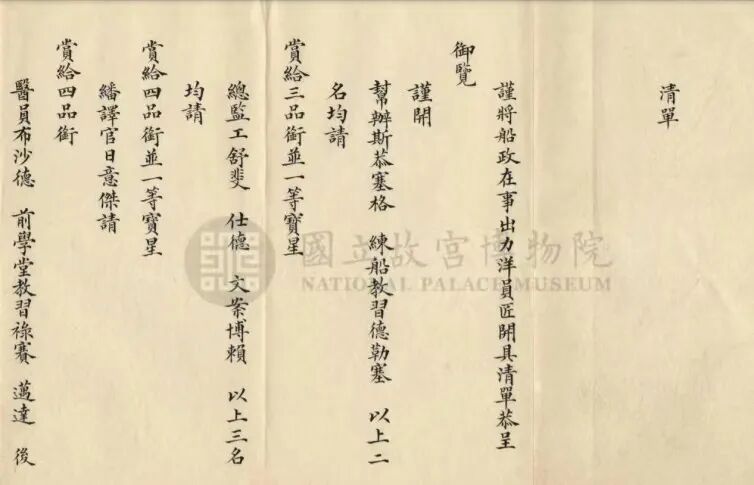 清單
謹將船政在事出力洋員匠開具清單恭呈
御覽
謹開
幫辦斯恭塞格 練船教習德勒塞 以上二
名均請
賞給三品銜並一等寶星
總監工舒斐 仕德 文案博賴 以上三名
均請
賞給四品銜並一等寶星
繙譯官日意傑請
賞給四品銜
醫員布沙德 前學堂教習祿賽 邁達 後
國立故宮博物院
NATIONAL PALACE MUSEUM